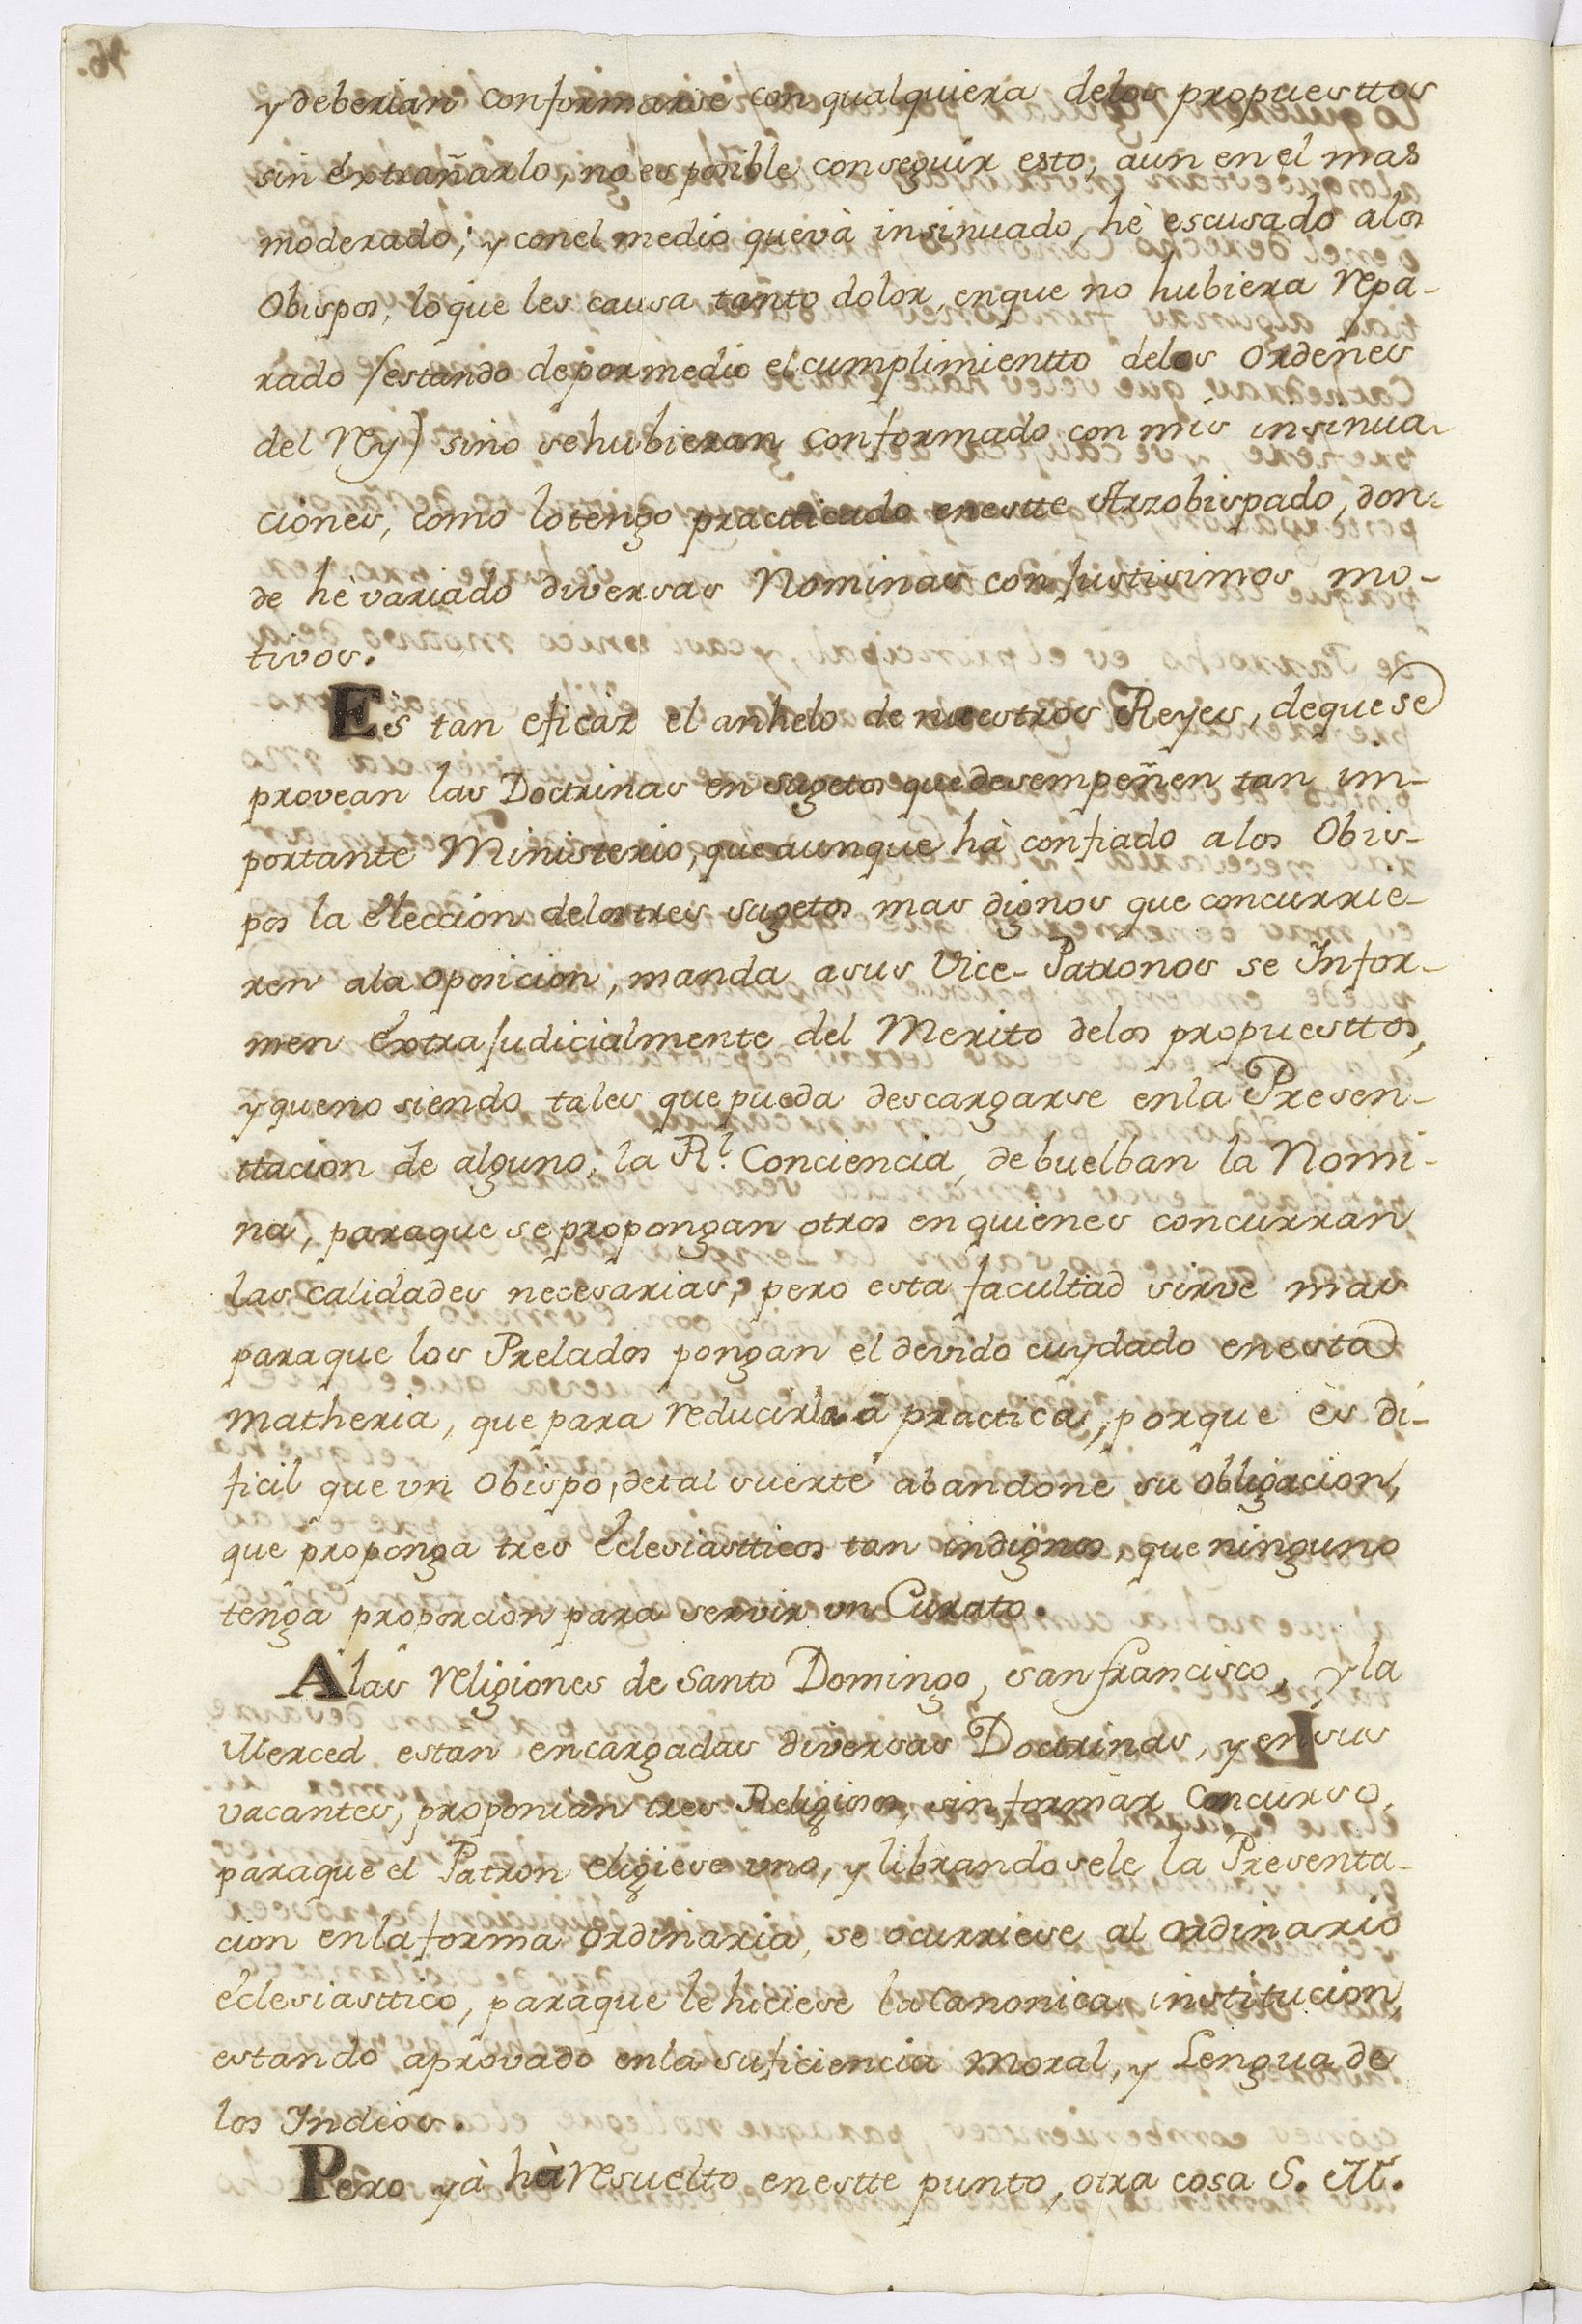 y deberian conformarse con qualquiera delos propuesttos
sin extrañarlo, no es posible conseguir esto, aun en el mas
moderado; y con el medio que và insinuado, hè escusado alos
Obispos, lo que les causa tanto dolor, en que no hubiera repa-
rado (estando depormedio el cumplimientto delos Ordenes
del Rey) sino sehubieran conformado con mis insinua-
ciones, como lo tengo practticado en estte Arzobispado, don-
de hè variado diversas Nominas con justisimos mo-
tivos.
Es tan eficaz el anhelo de nuestros Reyes, de que se
provean las Doctrinas en sugetos que desempeñen tan im-
portante Ministerio, que aunque hà confiado alos Obis-
pos la eleccion delos tres sugetos mas dignos que concurrie-
ren ala oposicion, manda asus Vice-Patronos se Infor-
men extrajudicialmente del Merito delos propuesttos,
y que no siendo tales que pueda descargarse enla Presen-
ttacion de alguno, la Rl. Conciencia, debuelban la Nomi-
na, paraque se propongan otros en quienes concurran
las calidades necesarias; pero esta facultad sirve mas
para que los Prelados pongan el devido cuydado en esta
matheria, que para reducirla à practica, porque ès di-
ficil que vn Obispo, detal suerte abandone su obligacion,
que proponga tres eclesiastticos tan indignos, que ninguno
tenga proporcion para servir vn Curato.
Alas religiones de Santo Domingo, san francisco, y la
Merced estan encargadas diversas Doctrinas, y en sus
vacantes, proponian tres Religiosos, sin formar Concurso,
paraque el Patron eligiese uno, y librandosele la Presenta-
cion enla forma ordinaria, se ocurriese al ordinario
eclesiasttico, paraque le hiciese la Canonica institucion,
estando aprovado enla suficiencia moral, y Lengua de
los Indios.
Pero yà hà resuelto en estte punto, otra cosa S. M.